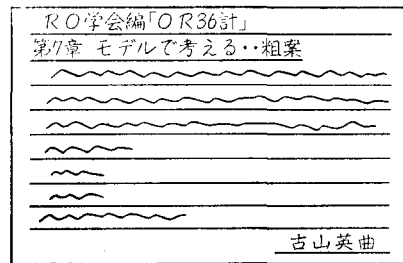 RO学会編「OR36計」
第7章 モデルで考える・・粗案
古山英曲